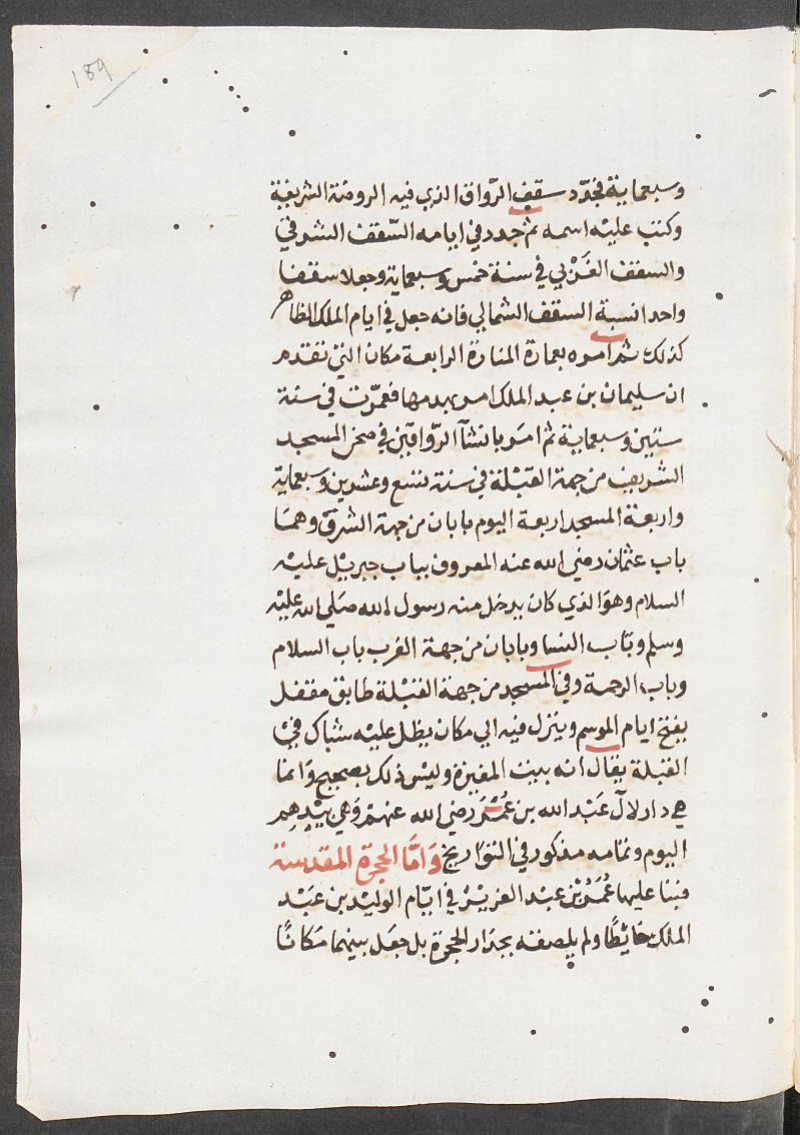 189
وسبعماية فجدّد سقف الرّواق الذي فيه الروضة الشريفة
وكتب عليه اسمه ثم جدد في ايامه السّقف الشرقي
والسقف الغَرْبي في سنة خمس وسبعماية وجعلا سقفا
واحدا نسبة السقف الشمالي فانه جعل في ايام الملك الظاهر
كذلك ثم امره بعمارة المنارة الرابعة مكان التي تقدم
ان سليمان بن عبد الملك امر بهدمها فعمّرت في سنة
ستين وسبعماية ثم امَر بانشآ الرّواقين في صحن المسجد
الشريف من جهة القبْلة في سنة تسع وعشرين وسبعماية
واربعة المسجد اربعة اليوم بابان من جهة الشرق وهمَا
باب عثمان رضي الله عنه المعروف بباب جبريْل عليْه
السلام وهوَ الذي كان يدخل منه رسول الله صَلي الله عليْه
وسلم وبَاب النسا وبابان من جهة الغرب باب السلام
وباب الرحمة وفي المسجد من جهة القبْلة طابق مقفل
يفتح ايام الموسم وينزل فيه الي مكان يطل عليْه شباك فيْ
القبلة يقال انه بيت المغيرة وليسَ ذلك بصحيح وَانما
هي دار لآل عَبْد الله بن عُمَر رضي الله عنهمْ وَهي بيْدِهِم
اليوم وتمامه مذكور في التوَاريخ وَامّا الحجرة المقدسة
فبنا عليها عُمَرُ بْن عبْد العزيْز في ايّام الوليْد بن عَبْد
الملك حَايُطًا ولم يلصقه بجدَار الحجرة بل جعَل بينهما مَكانًا